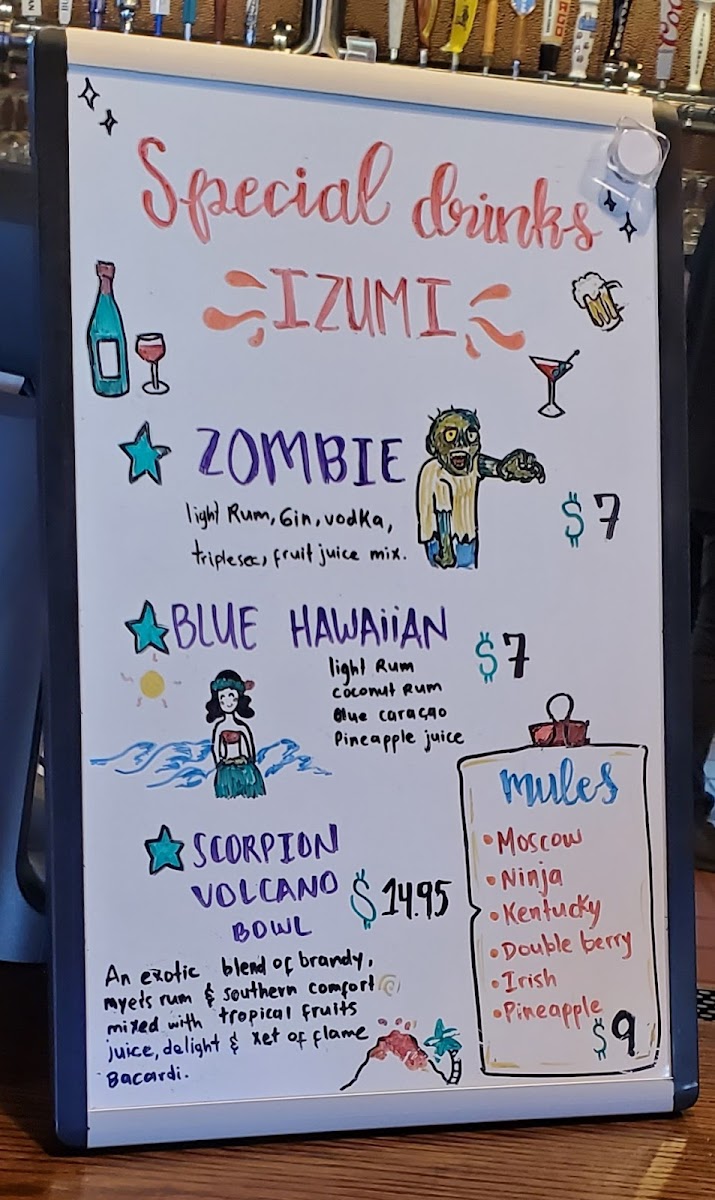 Special drinks
IZUMI
ZOMBIE
light Rum, Gin, vodka,
triplesec, fruit juice mix.
$7
BLUE HAWAiiAN
$7
light Rum
coconut Rum
Blue caraçao
Pineapple juice
SCORPION
VOLCANO
BOWL
$14.95
An exotic blend of brandy,
myers rum & southern comfort
mixed with tropical fruits
juice, delight & xet of flame
Bacardi.
mules
•Moscow
•Ninja
•Kentucky
•Double berry
•Irish
•Pineapple
$9